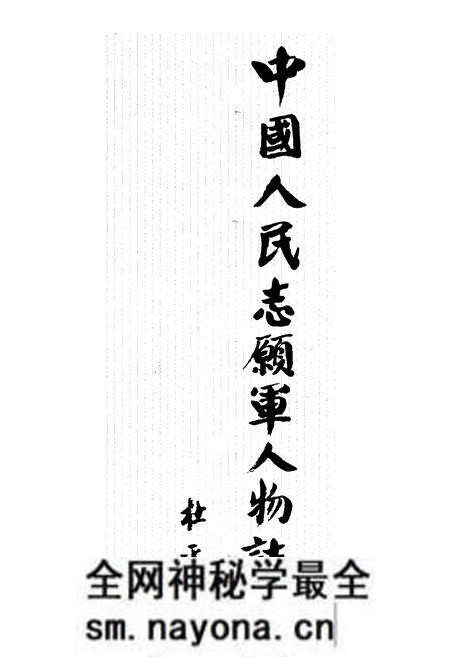 中國人民志願軍人物誌
杜
全网神秘学最全
sm.nayona.cn